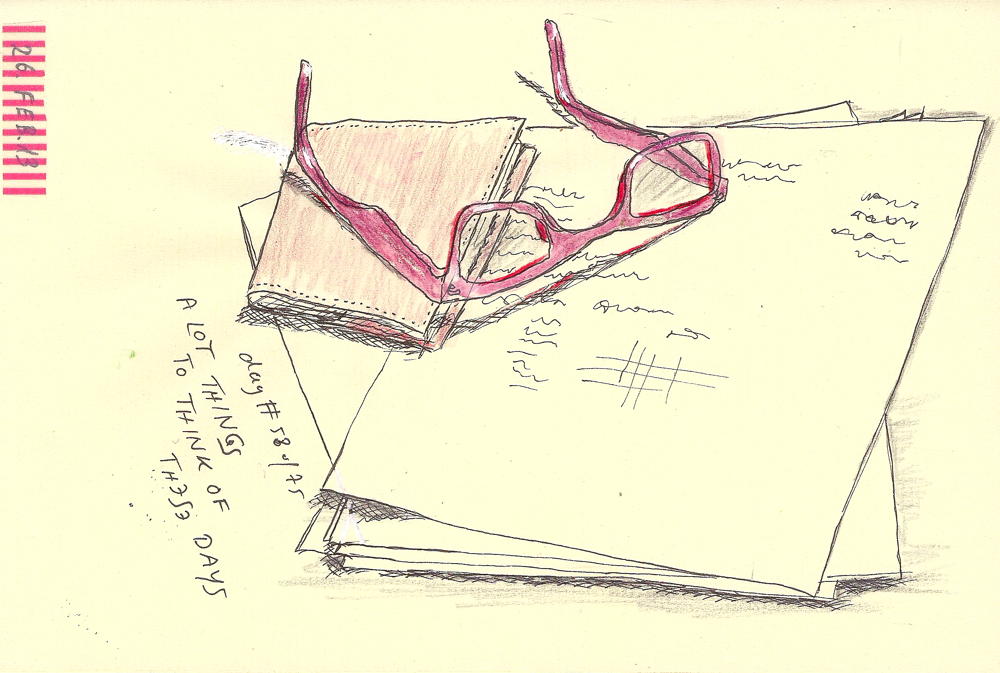 26. FEB. 13
day # 58 of 75
A LOT THINGS
TO THINK OF
THESE DAYS